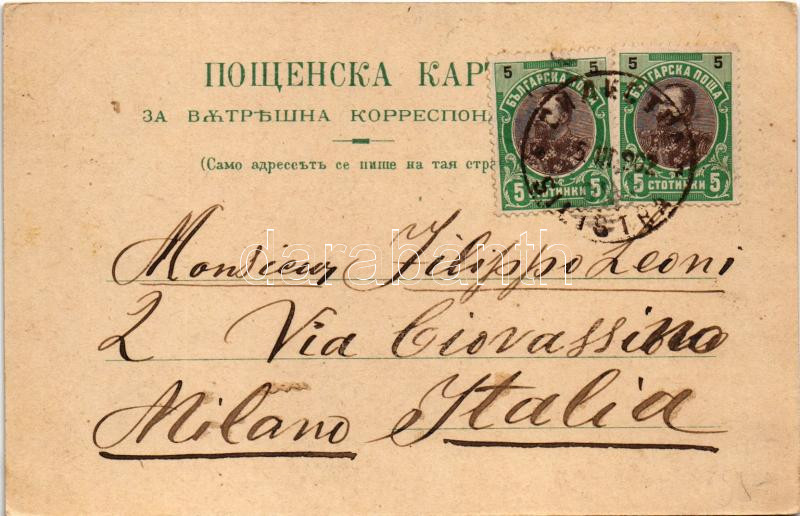 ПОЩЕНСКА КАР
ЗА ВѪТРѢШНА КОРРЕСПОН
(Само адресетъ се пише на тая стра
5 5
БЪЛГАРСКА ПОЩА
5 СТОТИНКИ 5
5 5
БЪЛГАРСКА ПОЩА
5 СТОТИНКИ 5
SILISTRA
darabanth.com
Monsieur Filippo Leoni
2 Via Ciovassino
Milano Italia